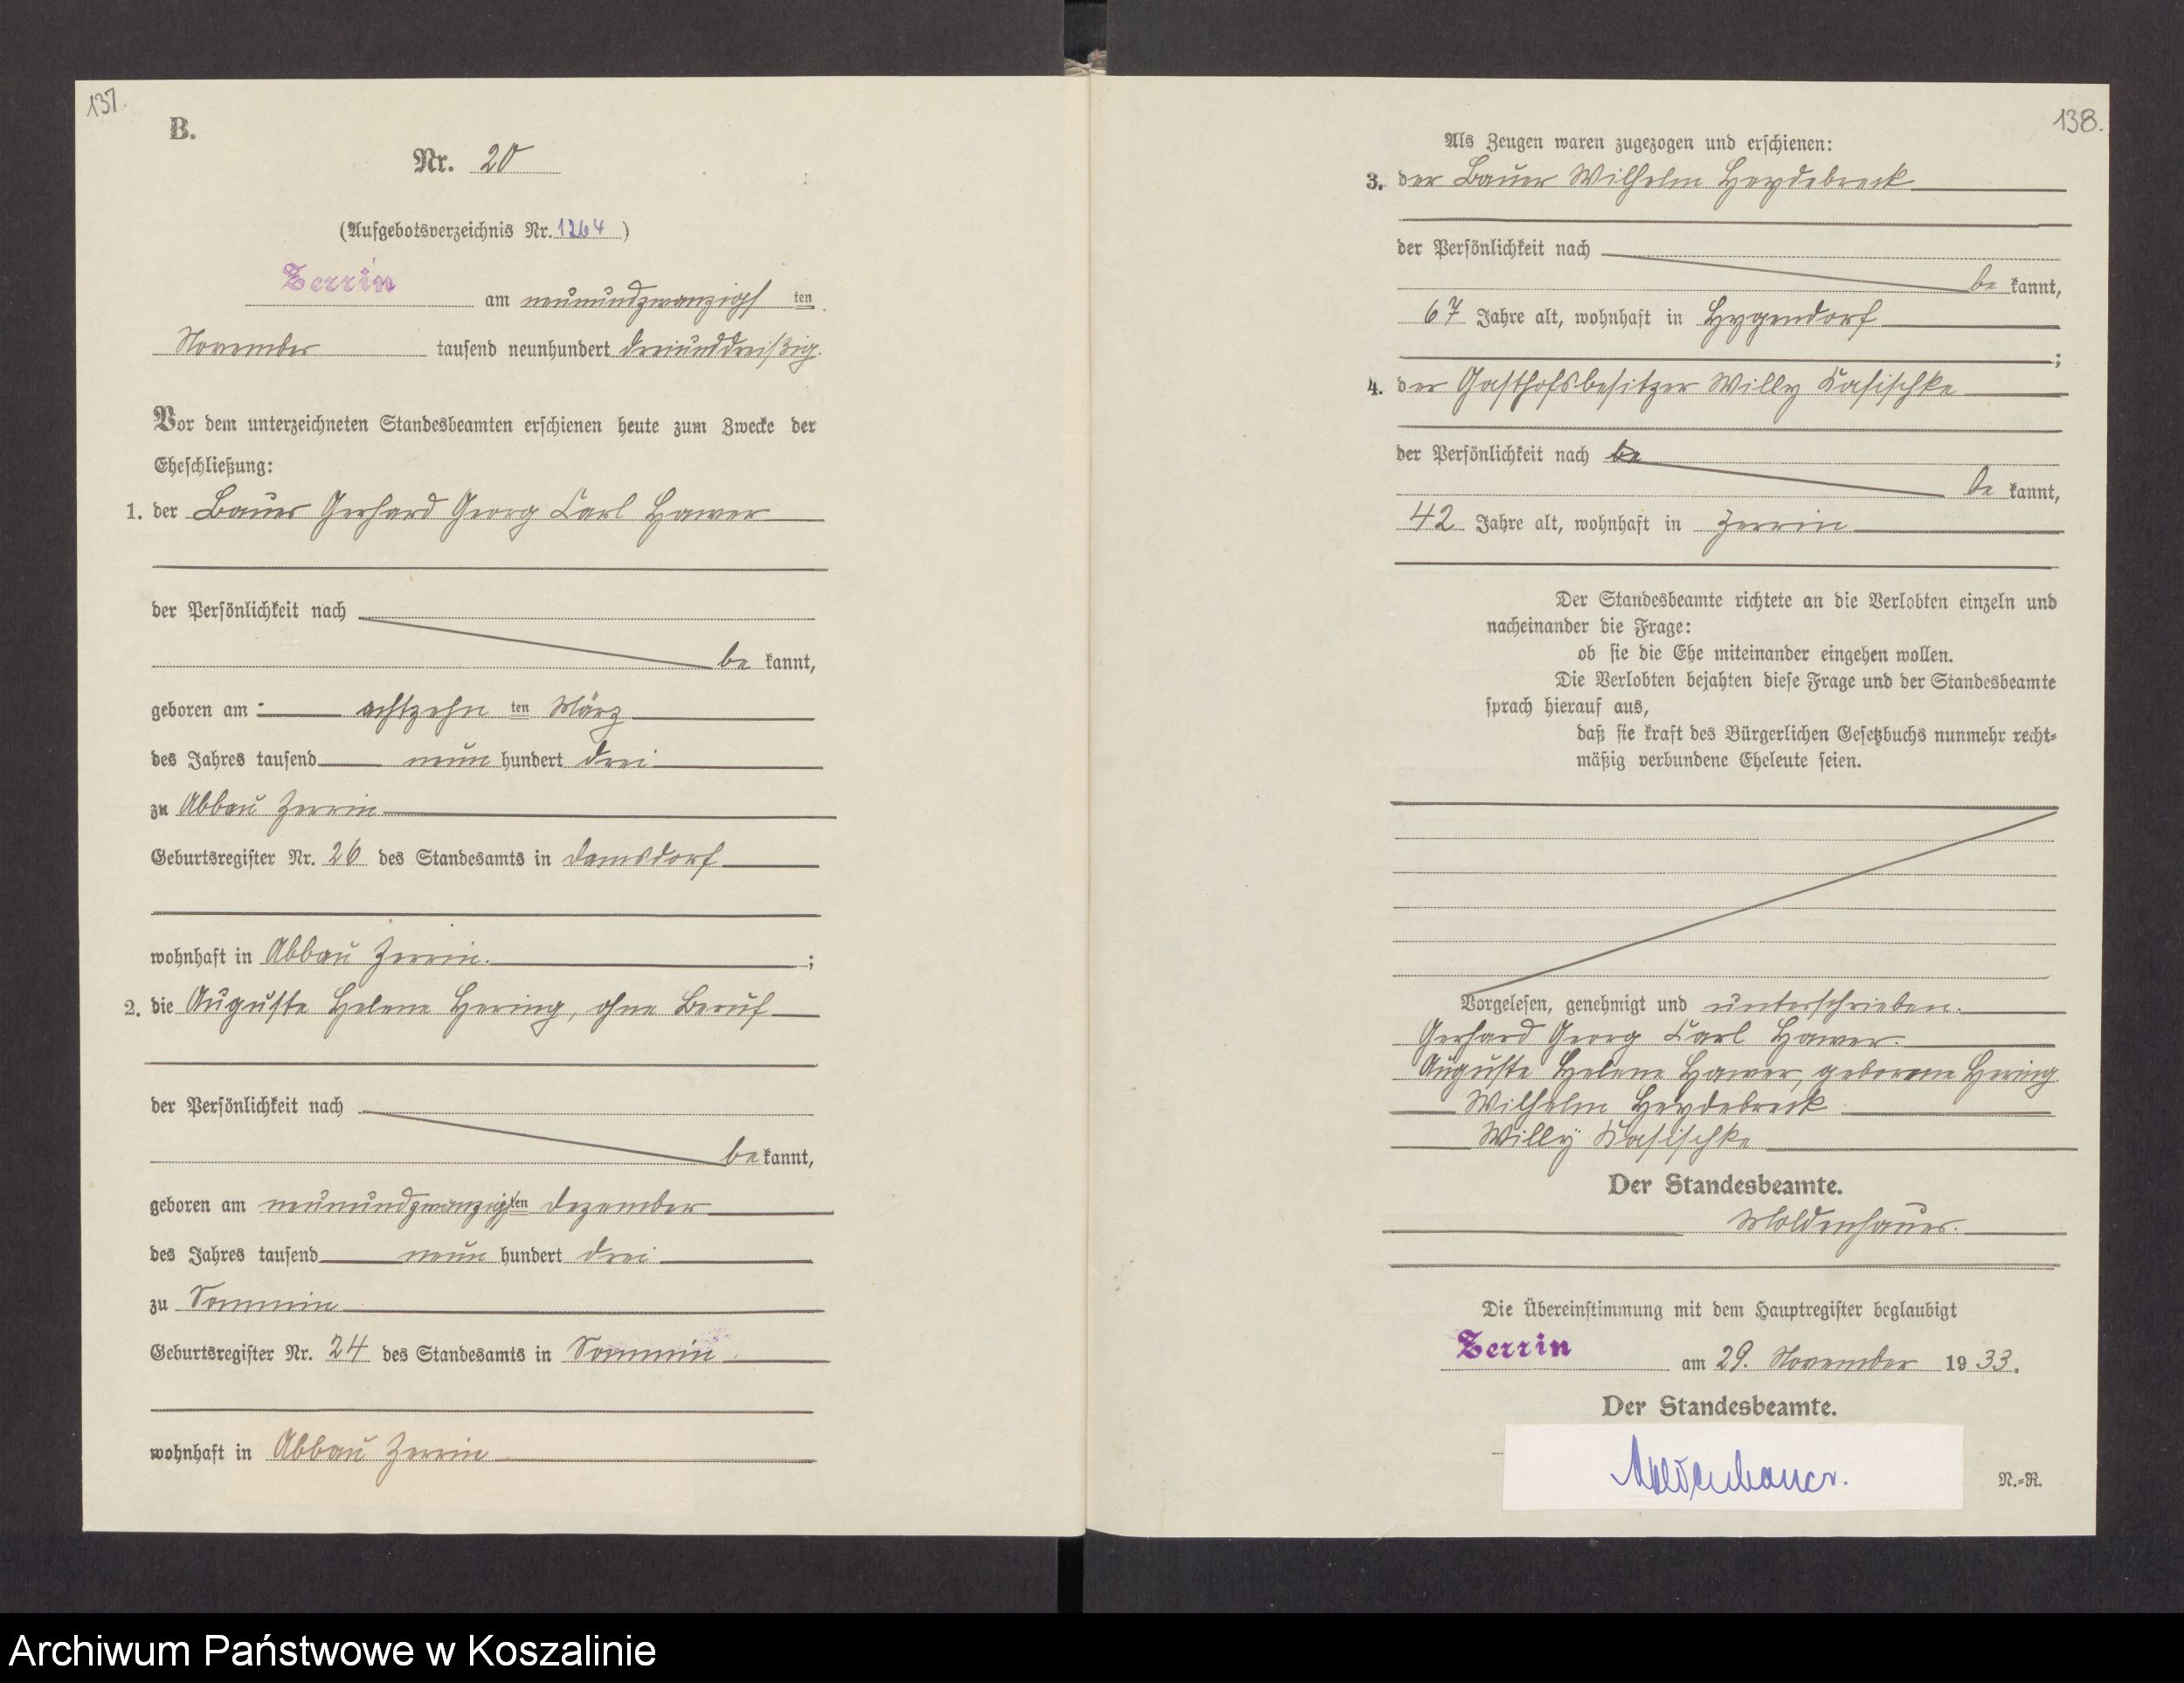 137.
B.
Nr. 20
(Aufgebotsverzeichnis Nr. 1264)
Zerrin am neunundzwanzigsten
November tausend neunhundert dreiunddreißig.
Vor dem unterzeichneten Standesbeamten erschienen heute zum Zwecke der
Eheschließung:
1. der Bauer Gerhard Georg Carl Hawer
der Persönlichkeit nach
be kannt,
geboren am achtzehn ten März
des Jahres tausend neun hundert drei
zu Abbau Zerrin
Geburtsregister Nr. 26 des Standesamts in Damsdorf
wohnhaft in Abbau Zerrin. ;
2. die Auguste Helene Hering, ohne Beruf
der Persönlichkeit nach
be kannt,
geboren am neunundzwanzigsten Dezember
des Jahres tausend neun hundert drei
zu Sommin
Geburtsregister Nr. 24 des Standesamts in Sommin
wohnhaft in Abbau Zerrin
138.
Als Zeugen waren zugezogen und erschienen:
3. der Bauer Wilhelm Heydebreck
der Persönlichkeit nach
be kannt,
67 Jahre alt, wohnhaft in Hygendorf
;
4. der Gasthofsbesitzer Willy Kasischke
der Persönlichkeit nach be
be kannt,
42 Jahre alt, wohnhaft in Zerrin
Der Standesbeamte richtete an die Verlobten einzeln und
nacheinander die Frage:
ob sie die Ehe miteinander eingehen wollen.
Die Verlobten bejahten diese Frage und der Standesbeamte
sprach hierauf aus,
daß sie kraft des Bürgerlichen Gesetzbuchs nunmehr recht-
mäßig verbundene Eheleute seien.
Vorgelesen, genehmigt und unterschrieben.
Gerhard Georg Carl Hawer.
Auguste Helene Hawer, geborene Hering
Wilhelm Heydebreck
Willy Kasischke
Der Standesbeamte.
Moldenhauer.
Die Übereinstimmung mit dem Hauptregister beglaubigt
Zerrin am 29. November 19 33.
Der Standesbeamte.
Moldenhauer.
N.-R.
Archiwum Państwowe w Koszalinie